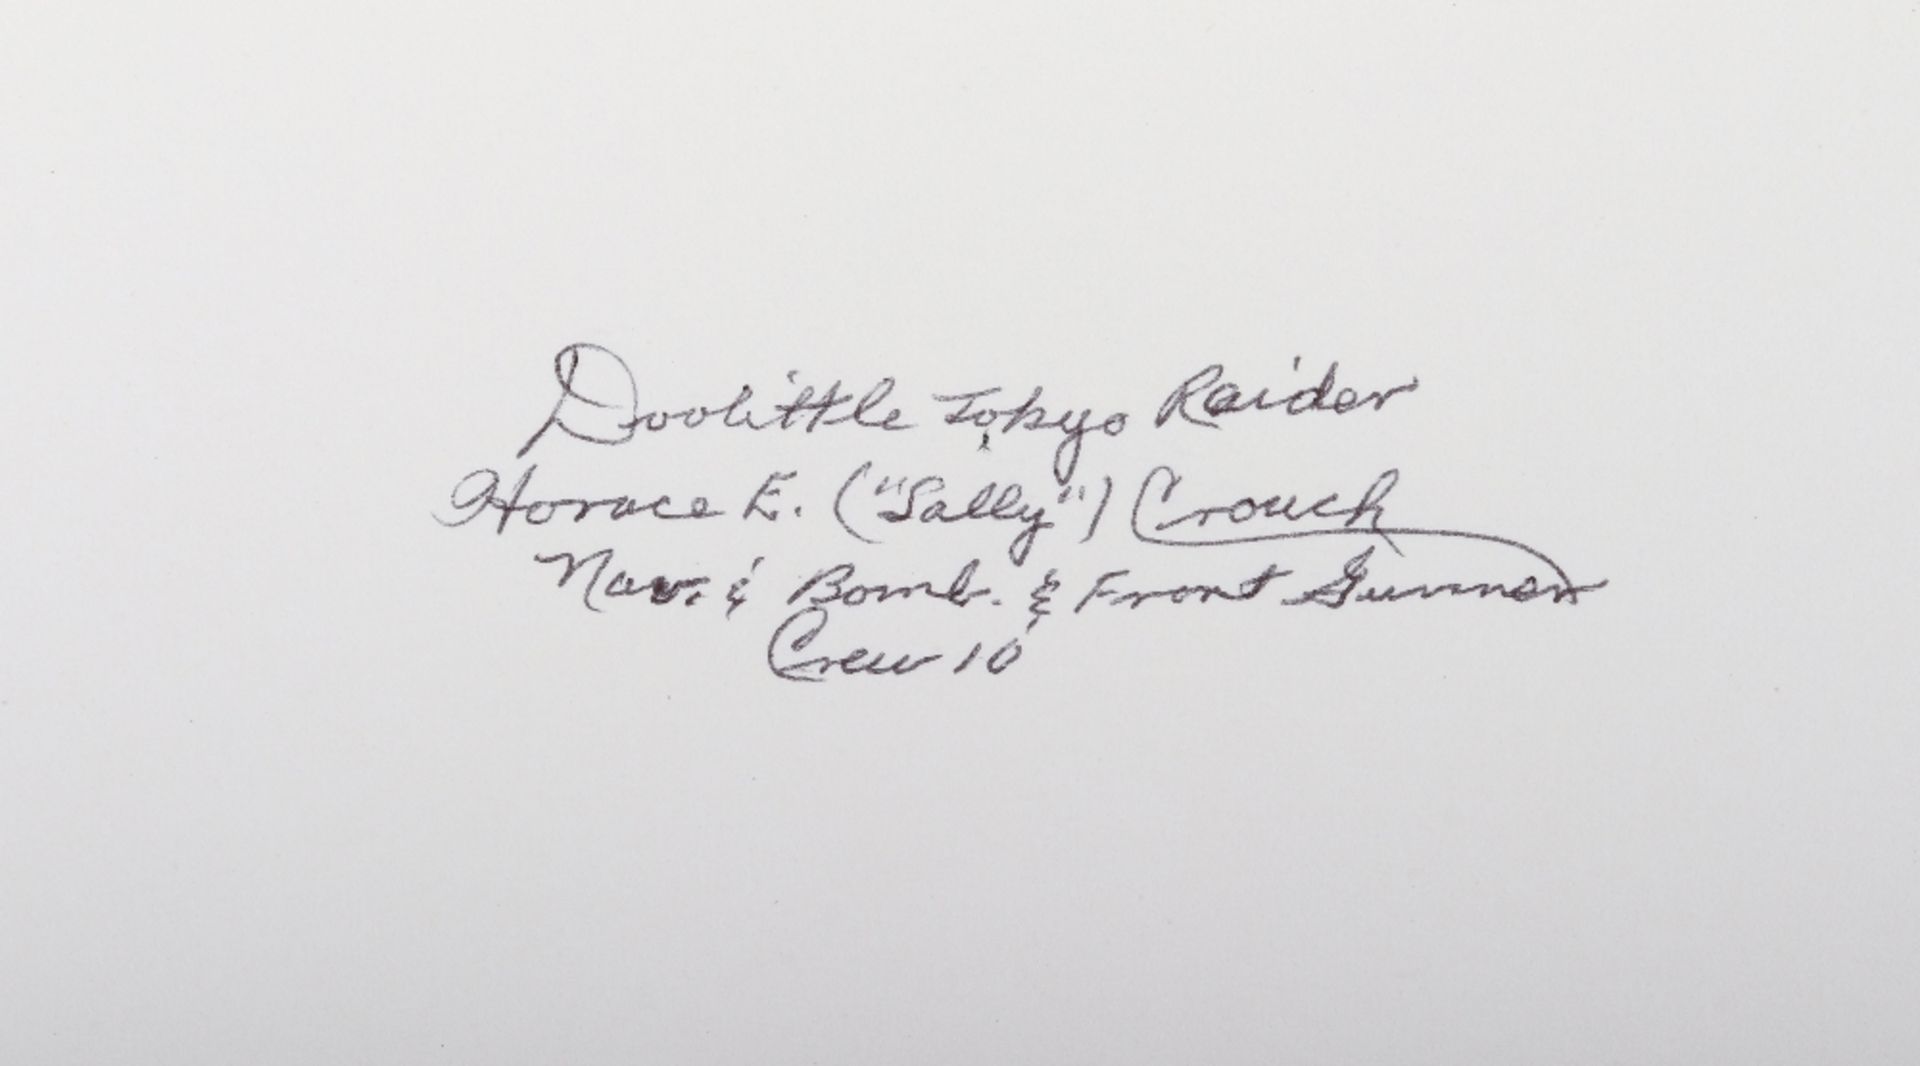 Doolittle Tokyo Raider
Horace E. ("Sally") Crouch
Nav. & Bomb. & Front Gunner
Crew 10